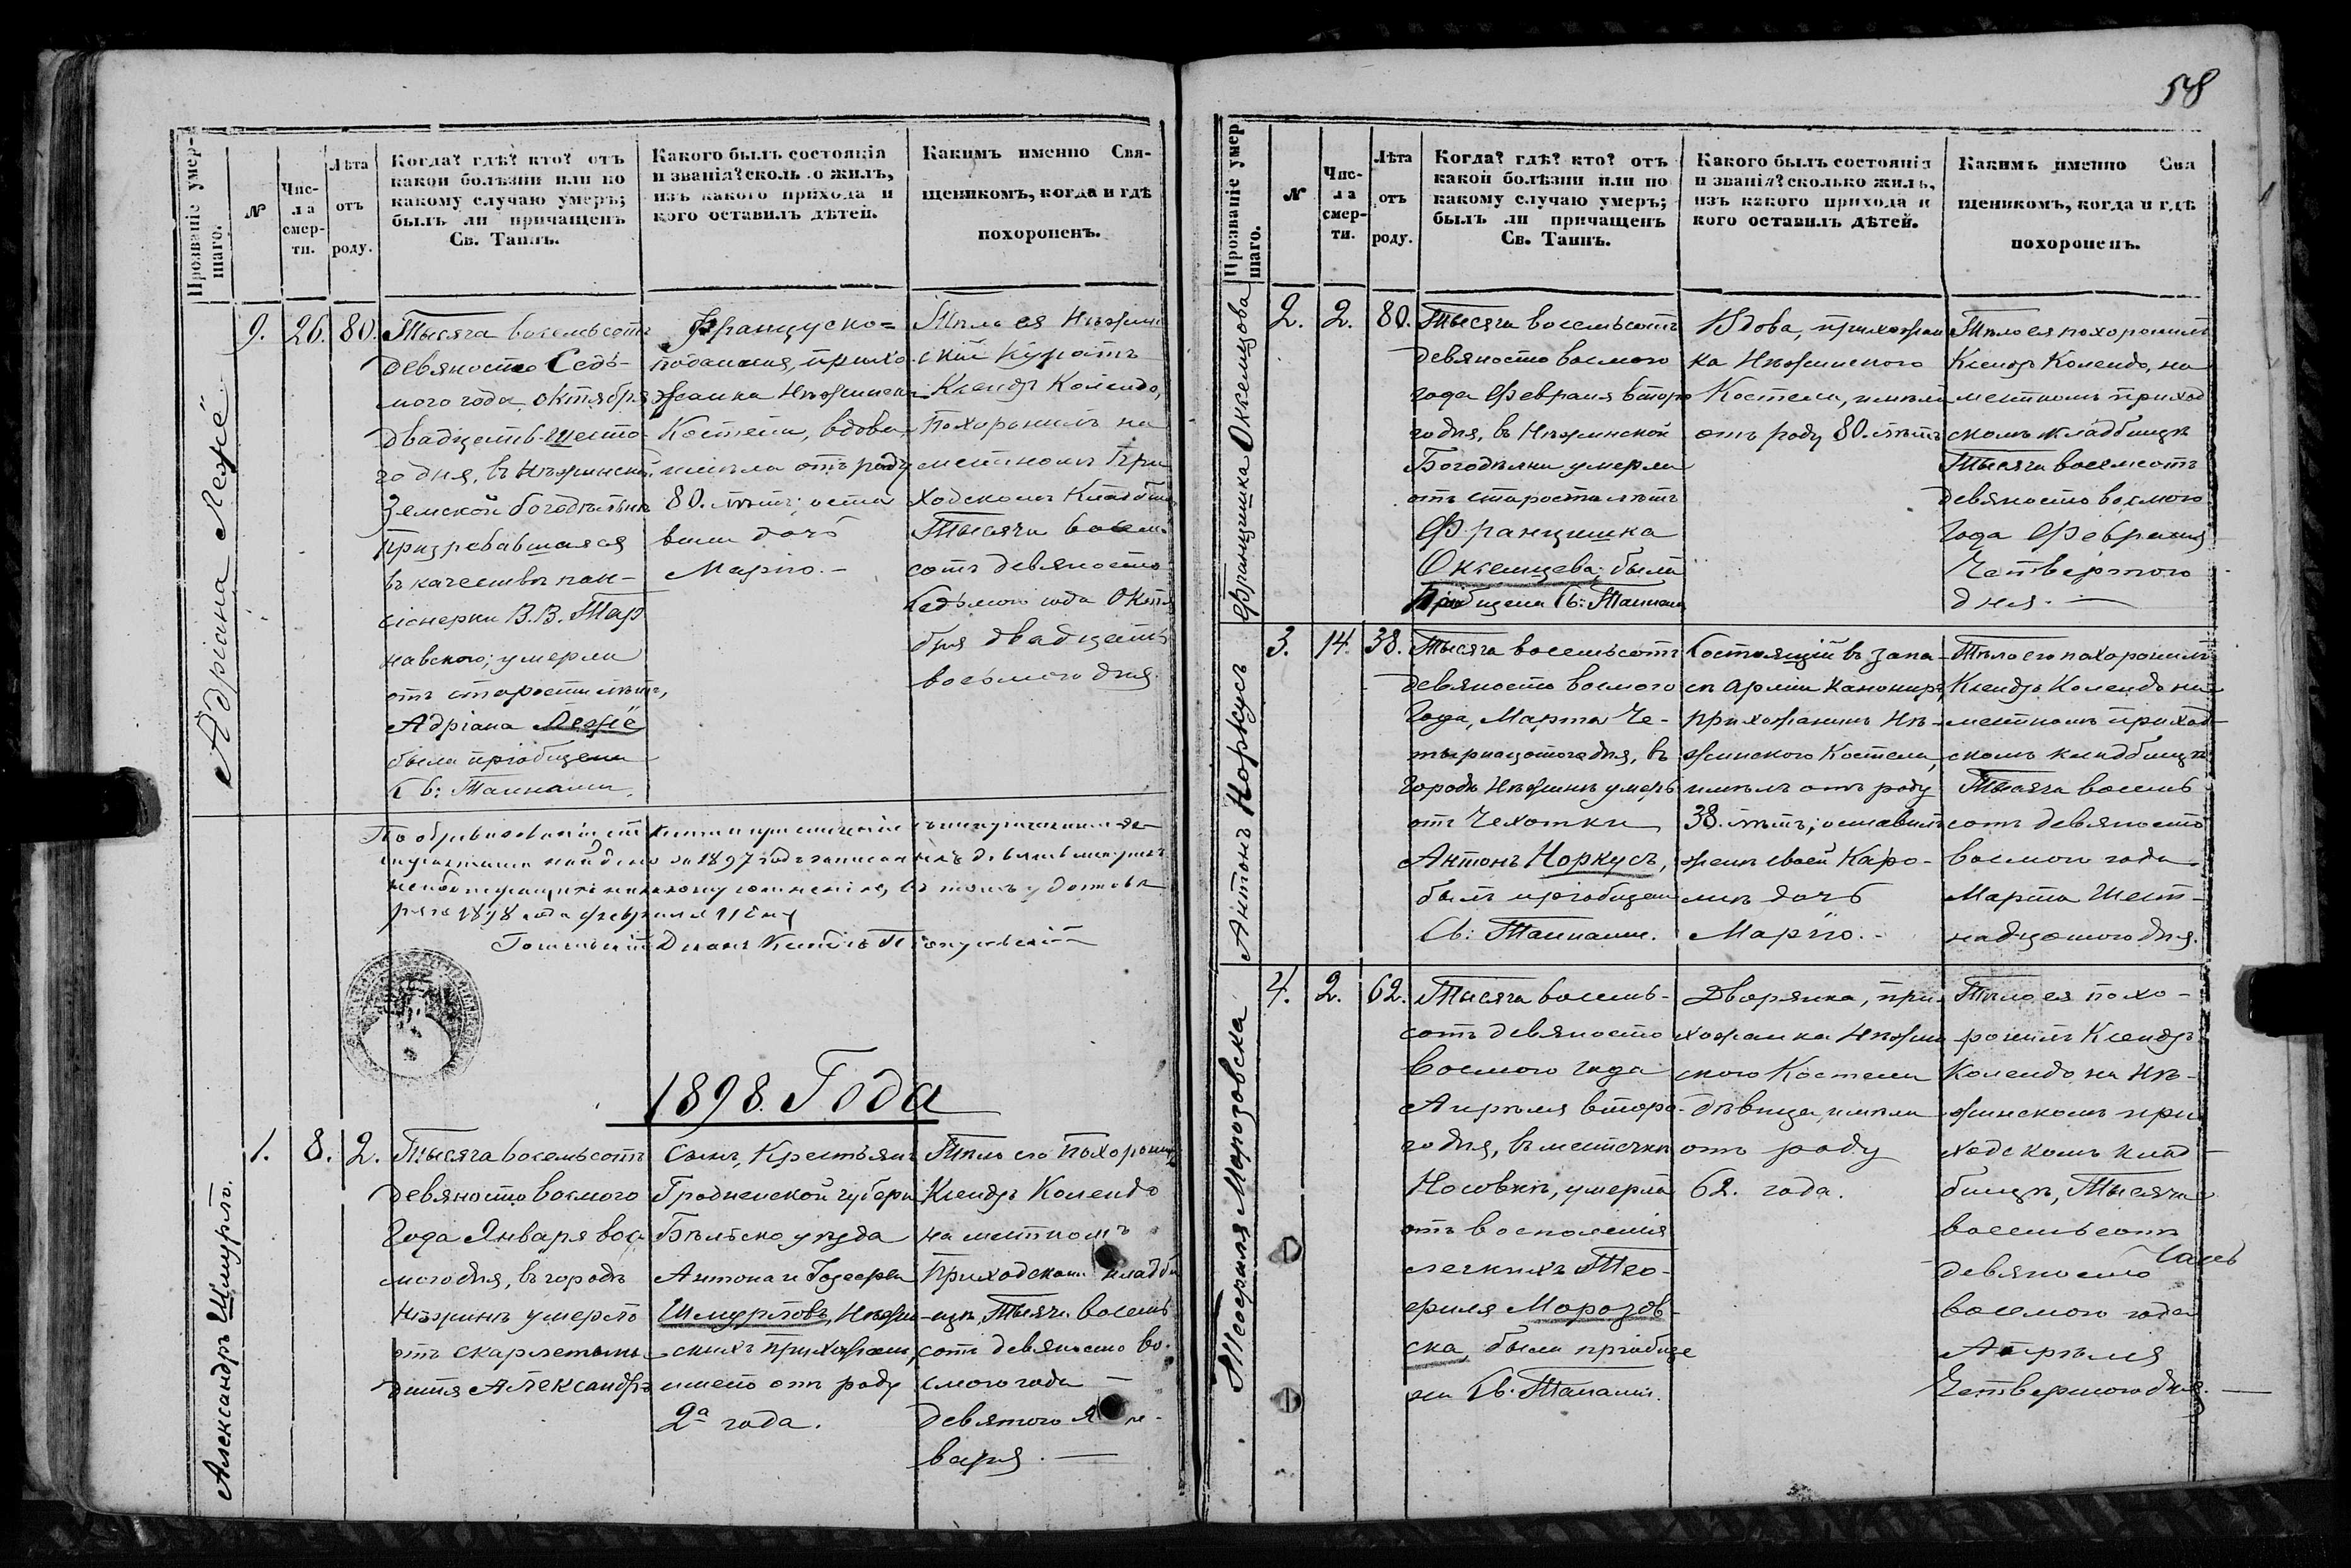 58
Прозваніе умер-
шаго.
№
Чис-
ла
смер-
ти.
Лѣта
отъ
роду.
Когда? гдѣ? кто? отъ
какой болѣзни или по
какому случаю умеръ;
былъ ли причащенъ
Св. Таинъ.
Какого былъ состоянія
и званія? сколько жилъ,
изъ какого прихода и
кого оставилъ дѣтей.
Какимъ именно Свя-
щеникомъ, когда и гдѣ
похороненъ.
Адріана Леже
9.
26.
80.
Тысяча восемьсотъ
девяносто Седь-
мого года, октября
двадцать-шесто-
го дня, въ Нѣжинской
Земской богадѣльнѣ
призревавшаяся
въ качествѣ пан-
сіонерки В.В. Тар
навского; умерла
отъ старости лѣтъ,
Адріана Леже
была пріобщена
Св: Тайнами.
Француско=
поданная, прихо
жанка Нѣжинск.
Костела, вдова,
имѣла отъ роду
80. лѣтъ; оста
вила дочь
Марію. -
Тѣло ея Нѣжин
скій Куратъ
Ксендзъ Колендо,
Похоронилъ на
местномъ При
ходскомъ Кладби
Тысяча восем
сотъ девяносто
Седьмого года Октя
бря двадцать
восьмого дня.
1897
1898 года февраля 11 дня
Деканъ Ксендзъ
1898. Года
Александръ Шмурлъ.
1.
8.
2.
Тысяча восемьсотъ
девяносто восмого
Года Января вос
мого дня, въ городѣ
Нѣжинѣ умерло
отъ скарлетины
дитя Александръ
Сынъ, Крестьянъ
Гродненской губерн
Бѣльско уѣзда
Антона и Іозефы
Шмурловъ, Нѣжин
скихъ прихожан,
имело отъ роду
2а года.
Тѣло его Похоронил
Ксендзъ Колендо
на местномъ
Приходском кладби
щѣ, Тысяча восемь
сотъ девяносто во-
смого года —
девятого Ян-
варя. —
Прозваніе умер
шаго.
№
Чис-
ла
смер-
ти.
Лѣта
отъ
роду.
Когда? гдѣ? кто? отъ
какой болѣзни или по
какому случаю умеръ;
былъ ли причащенъ
Св. Таинъ.
Какого былъ состоянія
и званія? сколько жилъ,
изъ какого прихода и
кого оставилъ дѣтей.
Какимъ именно Свя
щеникомъ, когда и гдѣ
похороненъ.
Францишка Оксенцова
2.
2.
80.
Тысяча восемьсотъ
девяносто восмого
года Февраля второ
го дня, въ Нѣжинской
Богодѣльни умерла
отъ старости лѣтъ
Францишка
Оксенцева; была
Пріобщена Св: Тайнами
Вдова, прихожан
ка Нѣжинского
Костела, имѣла
отъ роду 80. лѣтъ
Тѣло ея похоронилъ
Ксендзъ Колендо, на
местномъ приход
скомъ кладбищѣ
Тысяча восемсотъ
девяносто восмого
Года Февраля
Четвертого
дня. —
Антонъ Норкусъ
3.
14.
38.
Тысяча восемьсотъ
девяносто восмого
Года, Марта Че-
тырнацотого дня, въ
Городѣ Нѣжинѣ умеръ
отъ Чехотки
Антонъ Норкусъ,
былъ пріобщенъ
Св: Тайнами.
Состоящій въ запа
сѣ арміи канониръ,
прихожанинъ Нѣ-
жинского Костела,
имѣлъ отъ роду
38. лѣтъ; оставилъ
женѣ своей Каро-
линѣ дочь
Марію. -
Тѣло его похоронилъ
Ксендзъ Колендо на
местномъ приход
скомъ кладбищѣ
Тысяча восемь
сотъ девяносто
восмого года
Марта Шест-
надцотого дня.
Теофиля Морозовска
4.
2.
62.
Тысяча восемь-
сотъ девяносто
Восмого года
Апрѣля второ-
го дня, въ местечкѣ
Носовкѣ, умерла
отъ воспаленія
легкихъ Тео-
филя Морозов-
ска, была пріобще
на Св. Тайнами.
Дворянка, при
хожанка Нѣжин
ского Костела
дѣвица, имѣла
отъ роду
62. года.
Тѣло ея похо-
ронилъ Ксендзъ
Колендо на Нѣ-
жинскомъ при
ходскомъ клад-
бищѣ, Тысяча
восемьсотъ
девяносто
восемого года
Апрѣля
Четвертого дня. —